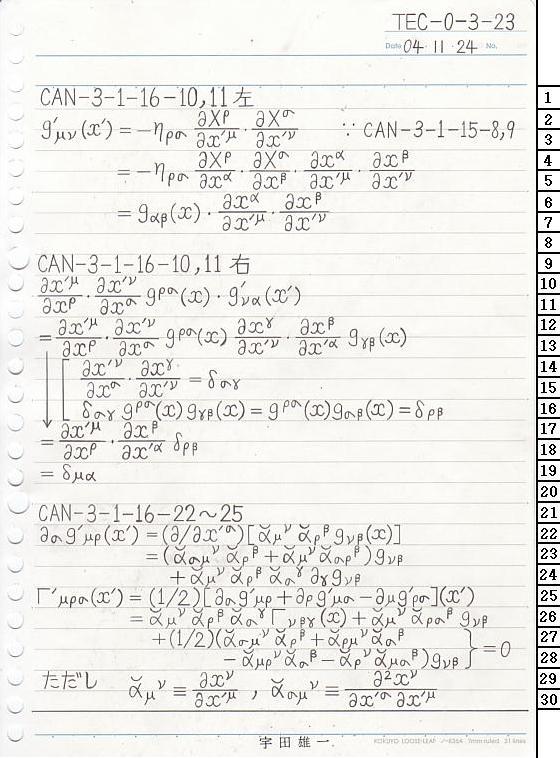 TEC-0-3-23
Date 04・11・24 No.
CAN-3-1-16-10,11左
g′μν(x′) = -ηρσ ∂Xρ/∂x′μ・∂Xσ/∂x′ν ∵ CAN-3-1-15-8,9
= -ηρσ ∂Xρ/∂xα・∂Xσ/∂xβ・∂xα/∂x′μ・∂xβ/∂x′ν
= gαβ(x)・∂xα/∂x′μ・∂xβ/∂x′ν
CAN-3-1-16-10,11右
∂x′μ/∂xρ・∂x′ν/∂xσ gρσ(x)・g′να(x′)
= ∂x′μ/∂xρ・∂x′ν/∂xσ gρσ(x) ∂xγ/∂x′ν・∂xβ/∂x′α gγβ(x)
∂x′ν/∂xσ・∂xγ/∂x′ν = δσγ
δσγ gρσ(x)gγβ(x) = gρσ(x)gσβ(x) = δρβ
= ∂x′μ/∂xρ・∂xβ/∂x′α δρβ
= δμα
CAN-3-1-16-22〜25
∂σg′μρ(x′) = (∂/∂x′σ)[α̌μν α̌ρβ gνβ(x)]
= (α̌σμν α̌ρβ + α̌μν α̌σρβ)gνβ
+ α̌μν α̌ρβ α̌σγ ∂γgνβ
Γ′μρσ(x′) = (1/2)[∂σg′μρ + ∂ρg′μσ - ∂μg′ρσ](x′)
= α̌μν α̌ρβ α̌σγ Γνβγ(x) + α̌μν α̌ρσβ gνβ
+ (1/2)(α̌σμν α̌ρβ + α̌ρμν α̌σβ
- α̌μρν α̌σβ - α̌ρν α̌μσβ)gνβ } = 0
ただし α̌μν ≡ ∂xν/∂x′μ , α̌σμν ≡ ∂²xν/∂x′σ∂x′μ
宇田雄一
KOKUYO LOOSE-LEAF ノ-836A 7mm ruled 31 lines
1
2
3
4
5
6
7
8
9
10
11
12
13
14
15
16
17
18
19
20
21
22
23
24
25
26
27
28
29
30